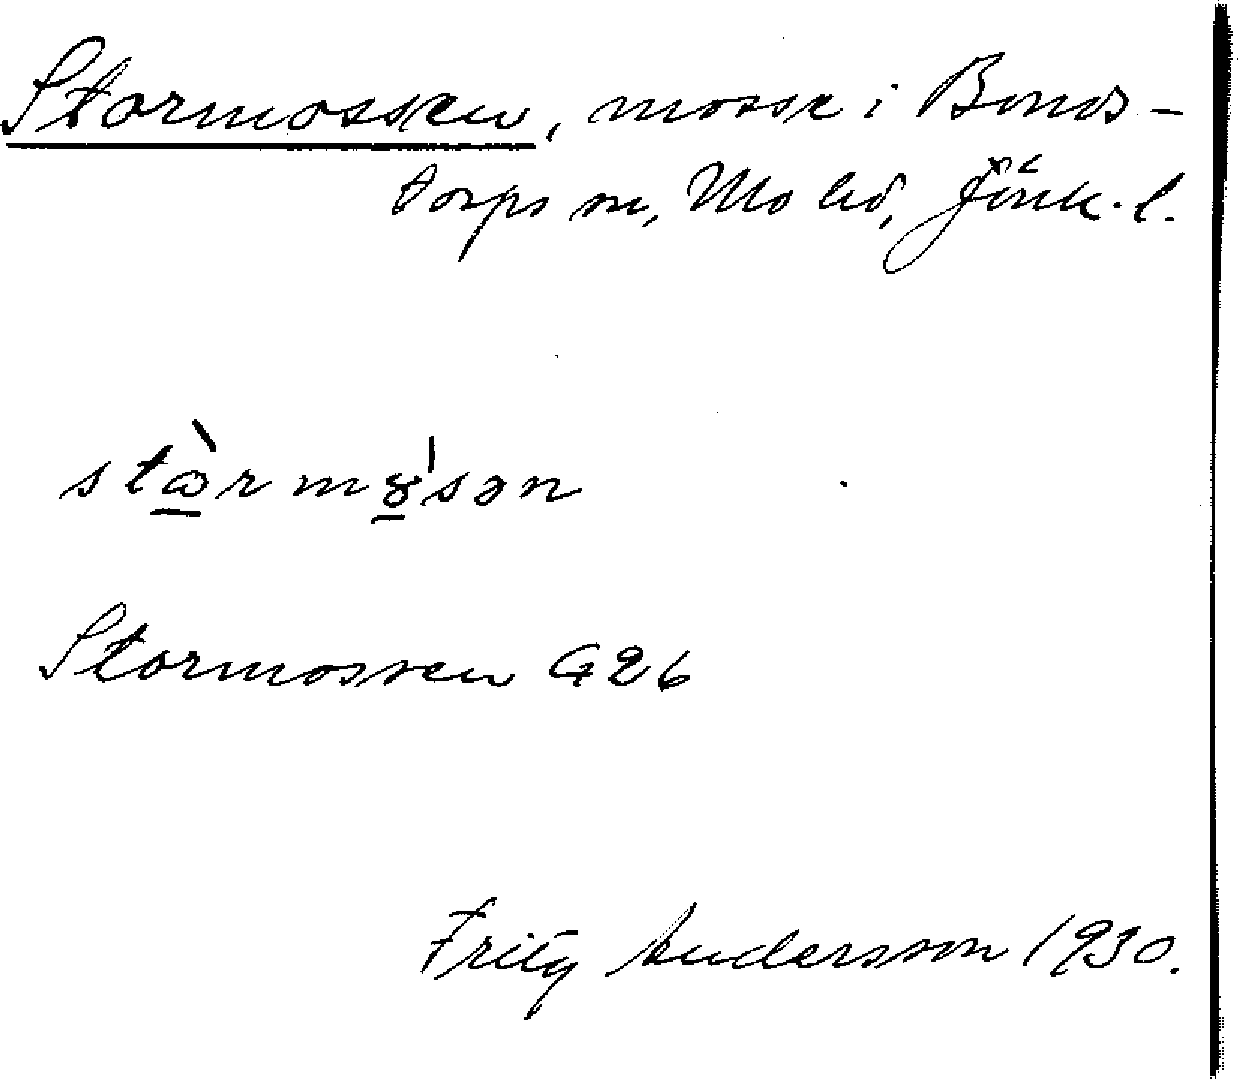 Stormossen, mosse i Bonds-
torps sn, Mo hd, Jönk. l.
Stormossen G26
Fritz Andersson 1930.